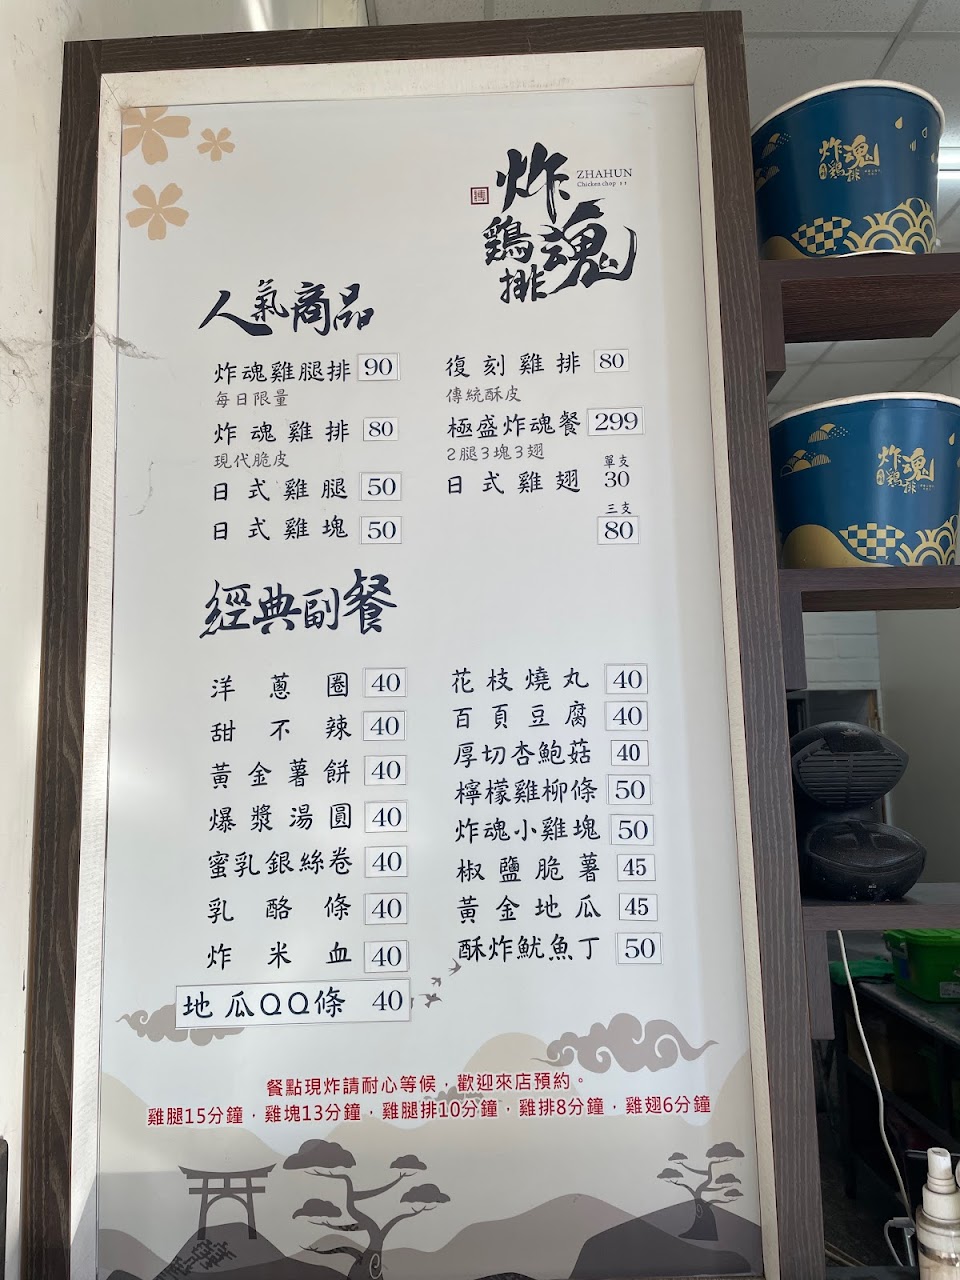 炸魂
鷄排
ZHAHUN
Chicken chop
人氣商品
炸魂雞腿排 90
每日限量
炸魂雞排 80
現代脆皮
日式雞腿 50
日式雞塊 50
復刻雞排 80
傳統酥皮
極盛炸魂餐 299
2腿3塊3翅
日式雞翅 單支 30
三支 80
經典副餐
洋蔥圈 40
甜不辣 40
黃金薯餅 40
爆漿湯圓 40
蜜乳銀絲卷 40
乳酪條 40
炸米血 40
地瓜QQ條 40
花枝燒丸 40
百頁豆腐 40
厚切杏鮑菇 40
檸檬雞柳條 50
炸魂小雞塊 50
椒鹽脆薯 45
黃金地瓜 45
酥炸魷魚丁 50
餐點現炸請耐心等候，歡迎來店預約。
雞腿15分鐘，雞塊13分鐘，雞腿排10分鐘，雞排8分鐘，雞翅6分鐘
炸魂
鷄排
炸魂
鷄排